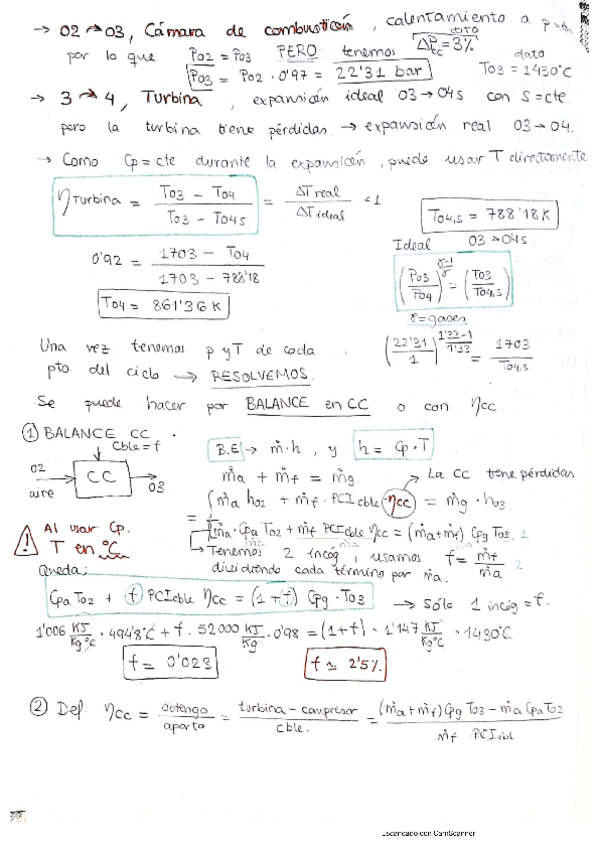 → 02→03, Cámara de combustión, calentamiento a p=
dato
por lo que P02 = P03 PERO tenemos ΔPcc = 3%
P03 = P02 · 0'97 = 22'31 bar
dato
T03 = 1430°C
→ 3→4, Turbina, expansión ideal 03→04s con s=cte
pero la turbina tiene pérdidas → expansión real 03→04.
→ Como Cp = cte durante la expansión, puedo usar T directamente
ηTurbina = (T03 − T04) / (T03 − T04s) = ΔT real / ΔT ideal < 1
T04,s = 788'18 K
0'92 = (1703 − T04) / (1703 − 788'18)
T04 = 861'36 K
Ideal 03→04s.
(P03/P04)^((γ-1)/γ) = (T03/T04,s)
γ = gases
(22'31/1)^((1'33-1)/1'33) = 1703/T04,s
Una vez tenemos p y T de cada
pto. del ciclo → RESOLVEMOS.
Se puede hacer por BALANCE en CC o con ηcc.
① BALANCE CC.
Cble = f
02
aire
CC
03
B.E → ṁ·h, y h = Cp·T
ṁa + ṁf = ṁg
La CC tiene pérdidas
ṁa h02 + ṁf · PCI cble ηcc = ṁg · h03
= ṁa · Cpa T02 + ṁf PCI cble ηcc = (ṁa+ṁf) Cpg T03. 1
Al usar Cp.
T en °C
Tenemos 2 incóg, usamos f = ṁf/ṁa 2
dividiendo cada término por ṁa.
Queda:
Cpa T02 + f PCI cble ηcc = (1+f) Cpg · T03 → Sólo 1 incóg = f.
1'006 KJ/Kg°C · 494'8°C + f · 52000 KJ/Kg · 0'98 = (1+f) · 1'147 KJ/Kg°C · 1430°C
f = 0'023
f ≈ 2'5%
② Def. ηcc = obtengo/aporto = (turbina − compresor)/cble. = ((ṁa+ṁf) Cpg T03 − ṁa Cpa T02) / (ṁf PCI cbl)
Escaneado con CamScanner